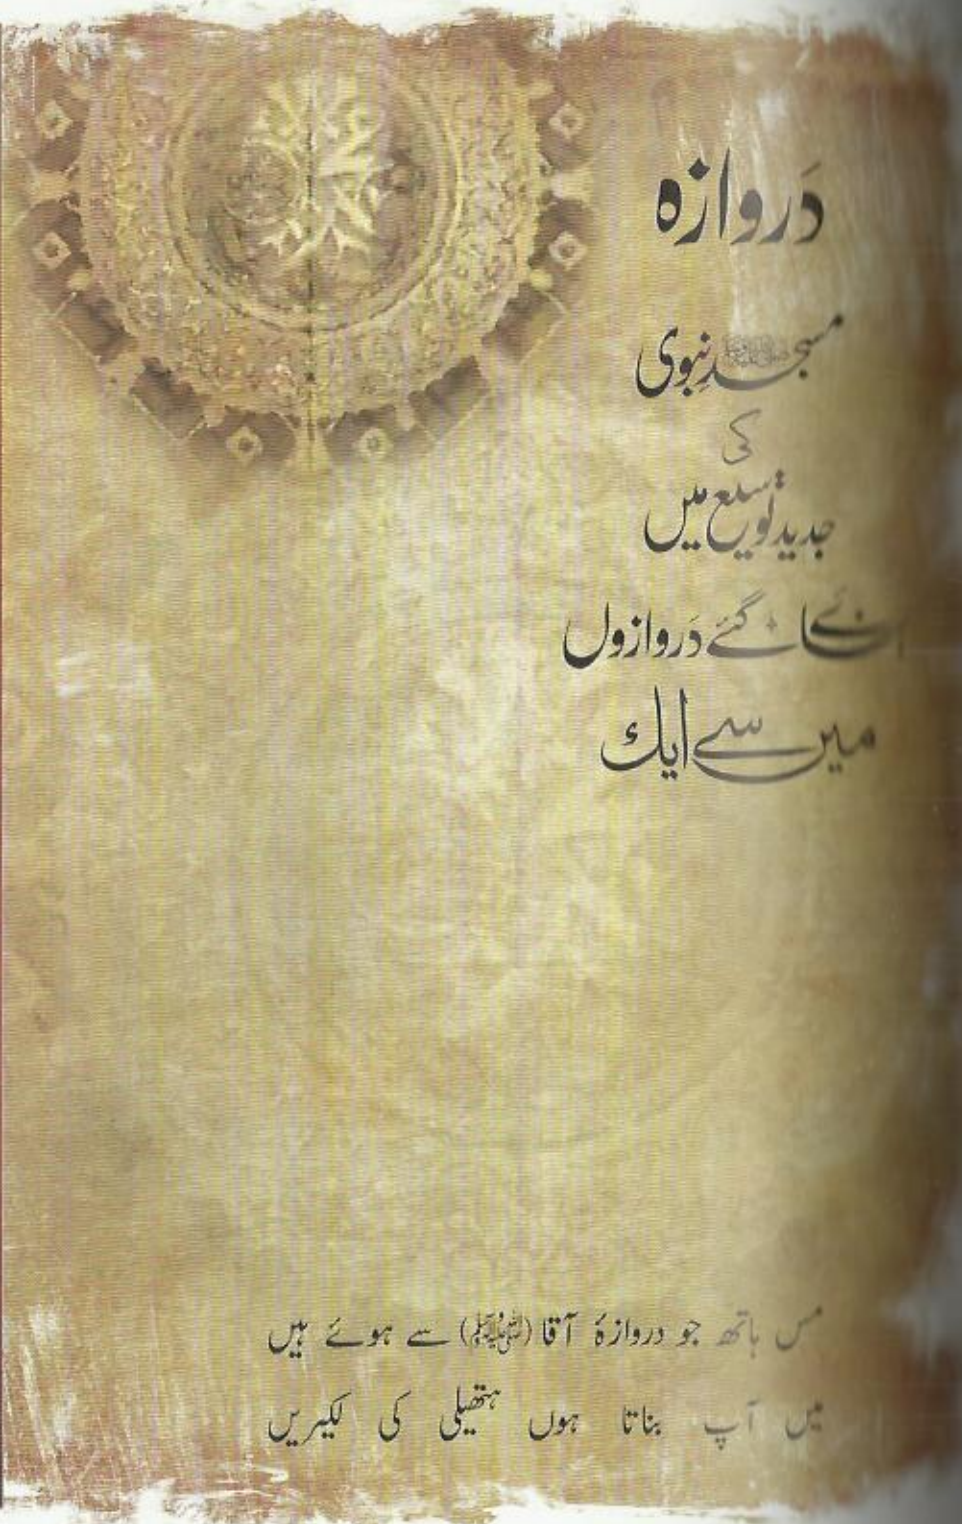 دَروازہ
مسجدِ نبوی ﷺ
کی
جدید توسیع میں
گئے دَروازوں
میں سے ایک
مس ہاتھ جو دروازۂ آقا (ﷺ) سے ہوئے ہیں
میں آپ بناتا ہوں ہتھیلی کی لکیریں